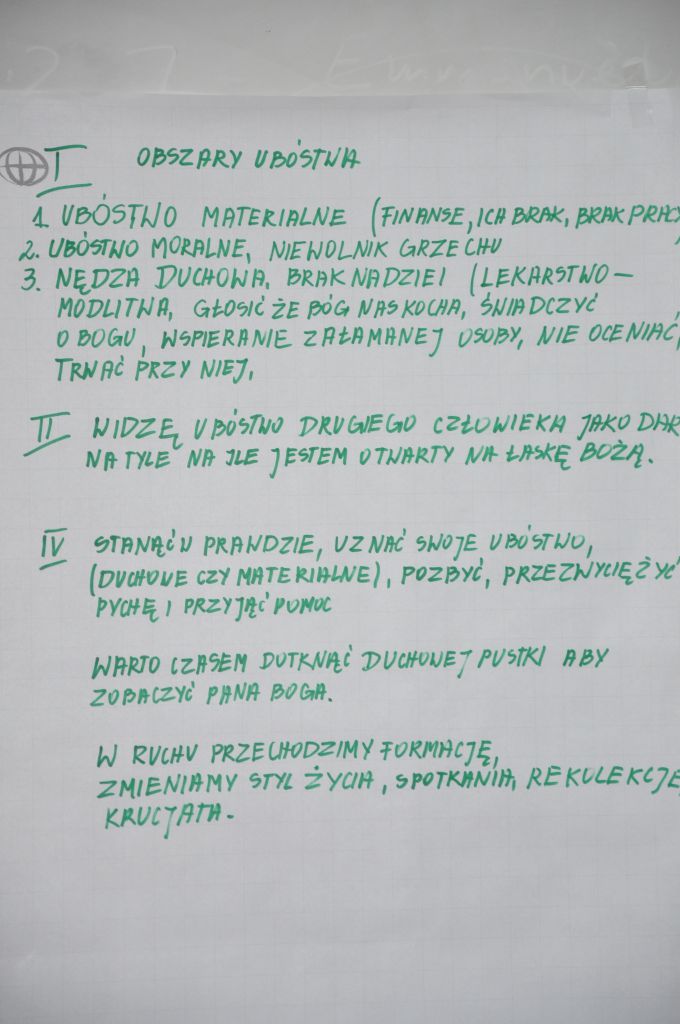 I OBSZARY UBÓSTWA
1. UBÓSTWO MATERIALNE (FINANSE, ICH BRAK, BRAK PRACY
2. UBÓSTWO MORALNE, NIEWOLNIK GRZECHU
3. NĘDZA DUCHOWA, BRAK NADZIEI (LEKARSTWO –
MODLITWA, GŁOSIĆ ŻE BÓG NAS KOCHA, ŚWIADCZYĆ
O BOGU, WSPIERANIE ZAŁAMANEJ OSOBY, NIE OCENIAĆ,
TRWAĆ PRZY NIEJ,
II WIDZĘ UBÓSTWO DRUGIEGO CZŁOWIEKA JAKO DAR
NA TYLE NA ILE JESTEM OTWARTY NA ŁASKĘ BOŻĄ.
IV STANĄĆ W PRAWDZIE, UZNAĆ SWOJE UBÓSTWO,
(DUCHOWE CZY MATERIALNE), POZBYĆ, PRZEZWYCIĘŻYĆ
PYCHĘ I PRZYJĄĆ POMOC
WARTO CZASEM DOTKNĄĆ DUCHOWEJ PUSTKI ABY
ZOBACZYĆ PANA BOGA.
W RUCHU PRZECHODZIMY FORMACJĘ,
ZMIENIAMY STYL ŻYCIA, SPOTKANIA, REKOLEKCJE,
KRUCJATA.